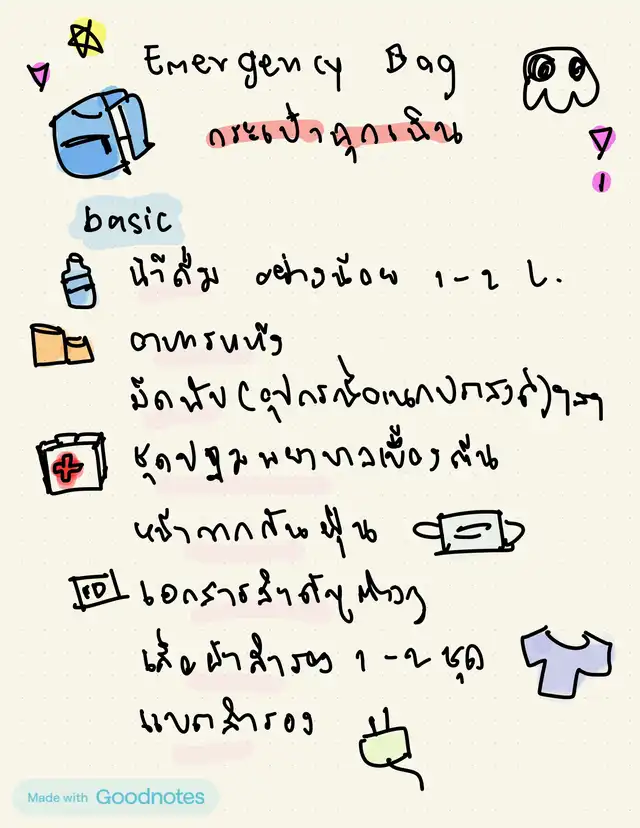 Emergency Bag
กระเป๋าฉุกเฉิน
basic
น้ำดื่ม อย่างน้อย 1-2 L.
อาหารแห้ง
มีดพับ (อุปกรณ์อเนกประสงค์)
ชุดปฐมพยาบาลเบื้องต้น
หน้ากากกันฝุ่น
ID เอกสารสำคัญต่างๆ
เสื้อผ้าสำรอง 1-2 ชุด
แบตสำรอง
Made with Goodnotes